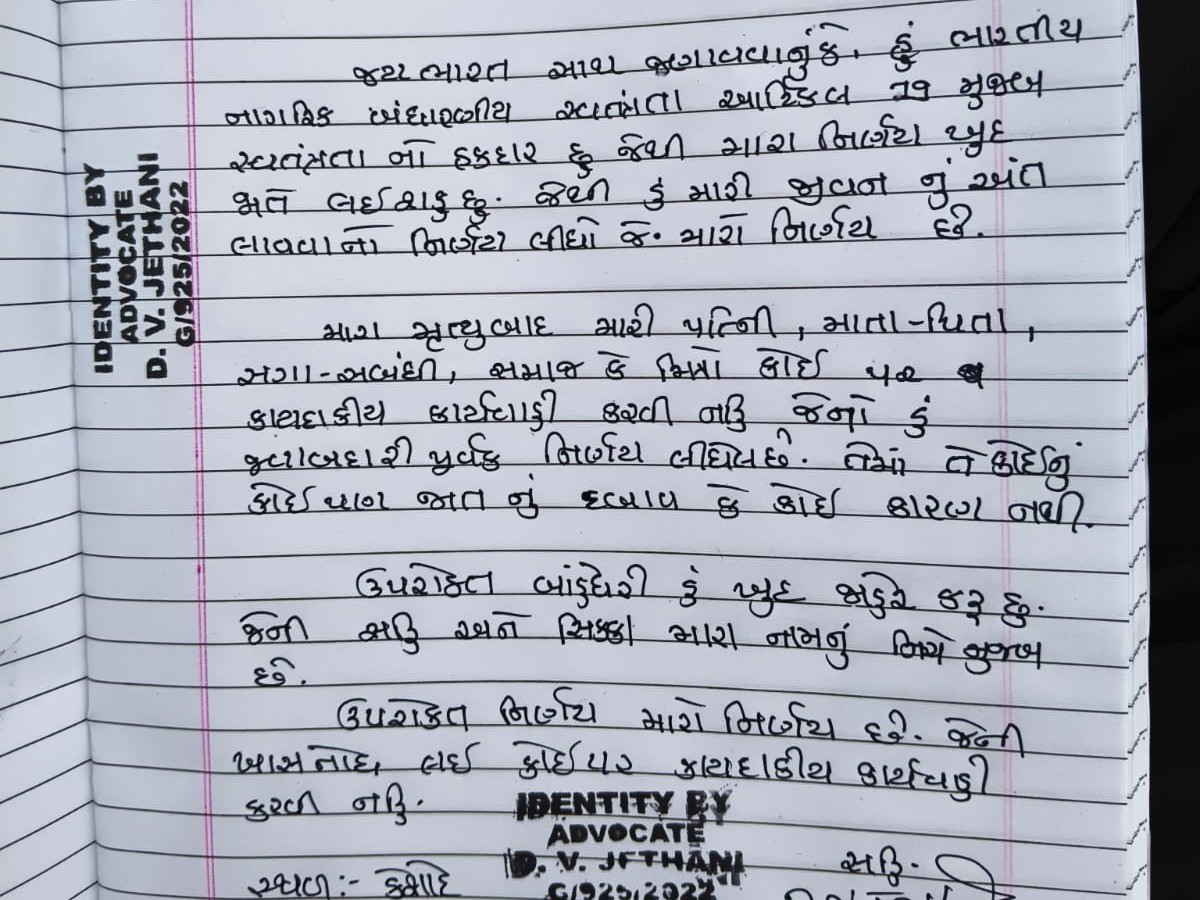 જય ભારત સાથ જણાવવાનું કે. હું ભારતીય
નાગરિક બંધારણીય સ્વતંત્રતા આર્ટિકલ મુજબ
સ્વતંત્રતા નો હકદાર છુ જેથી મારા નિર્ણય ખુદ
જાતે લઈ શકુ છુ. જેથી હું મારી જીવન નું અંત
લાવવાનો નિર્ણય લીધો જે. મારો નિર્ણય છે.
મારા મૃત્યુબાદ મારી પત્નિની, માતા-પિતા,
સગા-સબંધી, સમાજ કે મિત્રો કોઈ પર
કાયદાકીય કાર્યવાહી કરવી નહિ જેનો હું
જવાબદારી પુર્વક નિર્ણય લીધેલ છે. તેમાં તે કોઈનું
કોઈ પણ જાત નું દબાવ કે કોઈ કારણ નથી.
ઉપરોક્ત બાંહેધરી હું ખુદ જાહેર કરૂ છુ.
જેની સહિ અને સિક્કા મારા નામનું નિચે મુજબ
છે.
ઉપરોક્ત નિર્ણય મારો નિર્ણય છે. જેની
ખાસ નોંધ, લઈ કોઈ પર કાયદાકીય કાર્યવાહી
કરવી નહિ.
સ્થળ:- કેશોદ
સહિ.
IDENTITY BY
ADVOCATE
D. V. JETHANI
G/925/2022
IDENTITY BY
ADVOCATE
D. V. JETHANI
G/925/2022